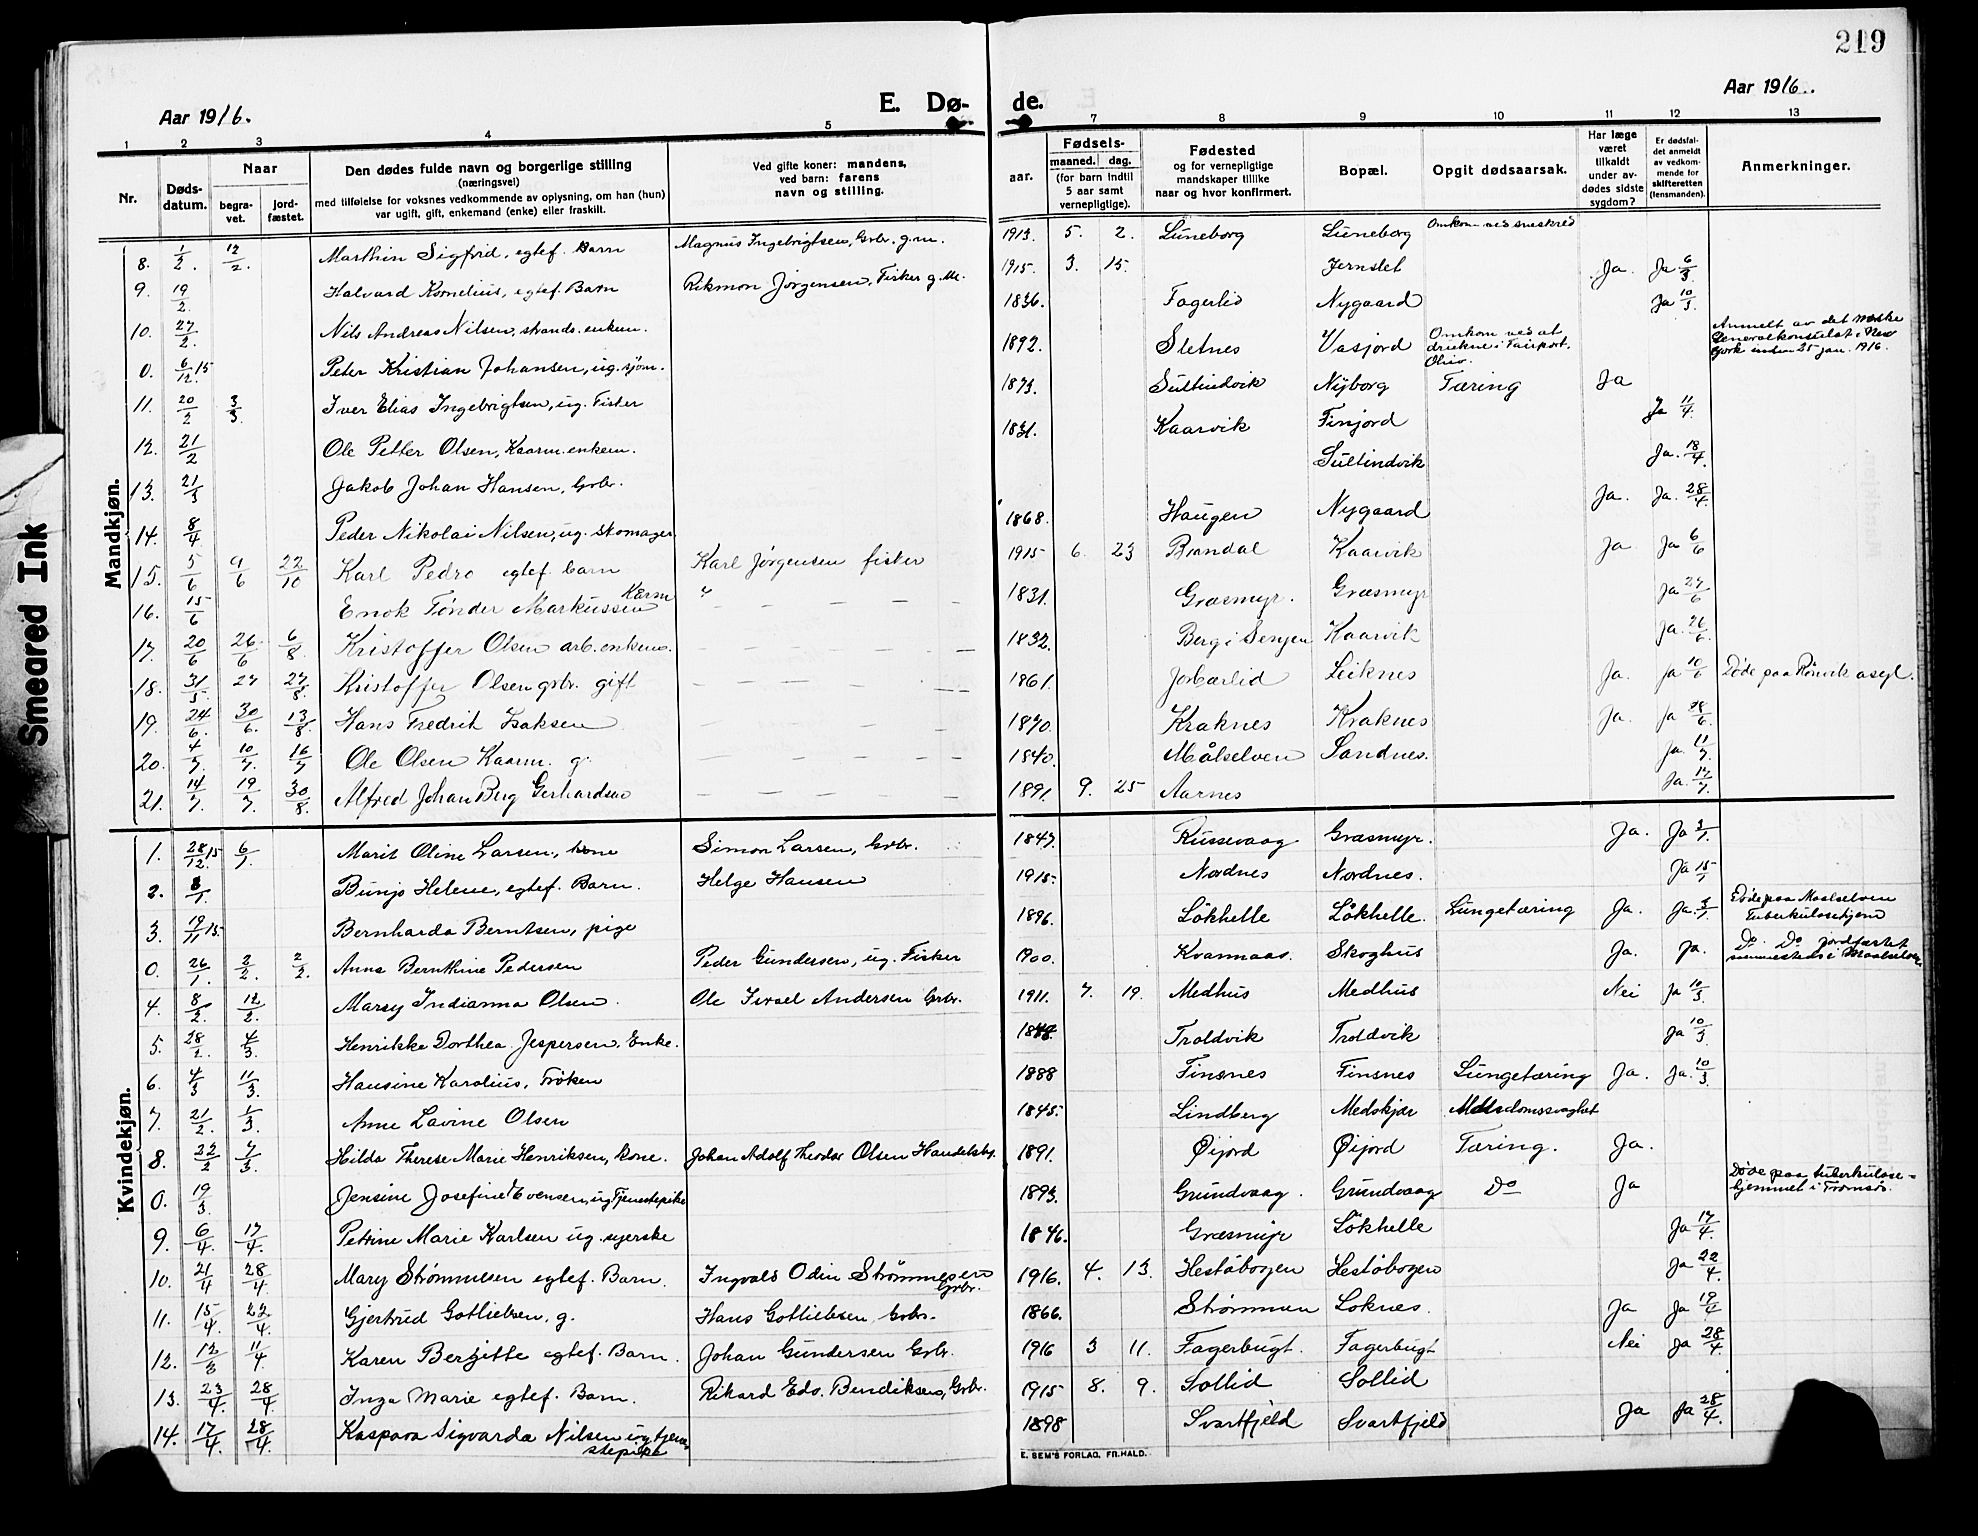 219
Aar 1916.
E. Dø-
de.
Aar 1916.
1 2 3 4 5 7 8 9 10 11 12 13
Nr.
Døds-
datum.
Naar
begra-
vet.
jord-
fæstet.
Den dødes fulde navn og borgerlige stilling
(næringsvei)
med tilføielse for voksnes vedkommende av oplysning, om han (hun)
var ugift, gift, enkemand (enke) eller fraskilt.
Ved gifte koner: mandens,
ved barn: farens
navn og stilling.
Fødsels-
aar.
maaned. dag.
(for barn indtil
5 aar samt
vernepligtige).
Fødested
og for vernepligtige
mandskaper tillike
naar og hvor konfirmert.
Bopæl.
Opgit dødsaarsak.
Har læge
været
tilkaldt
under av-
dødes sidste
sygdom?
Er dødsfal-
det anmeldt
av vedkom-
mende for
skifteretten
(lensmanden).
Anmerkninger.
Smeared Ink
Mandkjøn.
8. 1/2. 12/2. Marthin Sigfrid, egtef. Barn Magnus Ingebrigtsen, Grbr. g.m. 1913. 5. 2. Luneborg Luneborg Omkom ved sneskred
9. 19/2 Halvard Kornelius, egtef. Barn Rikmon Jørgensen, Fisker g. M. 1915. 3. 15. Jernslet Ja. Ja 6/3
10. 27/2. Nils Andreas Nilsen, strands. enkem. 1836. Fagerlid Nygaard Ja 10/3
0. 6/12. 15 Peter Kristian Johansen, ug. sjøm. 1892. Sletnes Vasjord Omkom ved at
drukne i Fairport,
Ohio.
Anmelt av det norske
Generalkonsulat i New
York inden 25 jan. 1916.
11. 20/2 3/3 Iver Elias Ingebrigtsen, ug. Fisker 1873. Sultindvik Nyborg Tæring Ja
12. 21/2 Ole Petter Olsen, Kaarm. enkem. 1831. Kaarvik Finjord Ja 11/4.
13. 21/3 Jakob Johan Hansen, Grbr. Sultindvik Ja. 18/4.
14. 8/4 Peder Nikolai Nilsen, ug. skomager 1868. Haugen Nygaard Ja. Ja. 28/4
15. 5/6 9/6 22/10 Karl Pedro egtef. barn Karl Jørgensen fisker 1915 6. 23 Brandal Kaarvik Ja Ja 6/6
16. 15/6 Enok Tønder Markussen Kårm " 1831. Græsmyr. Græsmyr Ja 27/6
17. 20/6 26/6 6/8 Kristoffer Olsen arb. enkem. 1832. Berg i Senjen Kaarvik Ja. 26/6.
18. 31/5 27 27/8. Kristoffer Olsen grbr. gift 1861. Leiknes Ja. Ja 10/6 Døde paa Rønvik asyl.
19. 24/6. 30/6. 13/8 Hans Fredrik Isaksen 1870. Kraknes Kraknes Ja. Ja 28/6.
20. 4/7. 10/7. 16/7 Ole Olsen Kaarm. g. 1840. Målselven Sandnes. Ja. 11/7
21. 14/7. 19/7. 30/8. Alfred Johan Berg Gerhardsen 1891. 9. 25 Aarnes Ja. 17/7.
Kvindekjøn.
1. 28/12. 15 6/1. Marit Oline Larsen, kone Simon Larsen, Grbr. 1847. Russevaag Græsmyr. Ja. Ja 3/1.
2. 8/1 Bunjo Helene, egtef. Barn. Helge Hansen 1915. Nordnes Nordnes. Ja 15/1
3. 19/11 15. Bernharda Berntsen, pige 1896. Løkhelle Løkhelle. Lungetæring Ja. Ja. 3/1. Døde paa Maalselven
Tuberkulosehjem
0. 26/1. 2/2. 2/2. Anna Bernthine Pedersen Peder Gundersen, ug. Fisker 1900. Kvannaas. Skoghus Ja. Ja. Do. Do jordfæstet
sammesteds i Maalselven
4. 8/2. 12/2. Marsy Indianna Olsen. Ole Israel Andersen Grbr. 1911. 7. 19. Medhus Medhus Nei Ja 10/3.
5. 28/2. 4/3. Henrikke Dorthea Jespersen. Enke. 1848. Troldvik Troldvik Ja 10/3.
6. 4/3 11/3. Hansine Karolius, Frøken 1888 Finsnes Finsnes Lungetæring Ja. Ja. 10/3.
7. 21/2. 1/3. Anne Lavine Olsen 1845. Lindberg Medskjær Alderdomssvaghet
8. 22/2 7/3. Hilda Therese Marie Henriksen, kone. Johan Adolf Theodor Olsen Handelsbr. 1891. Øijord Øijord Tæring. Ja.
0. 19/3. Jensine Josefine Evensen, ug. Tjenestepike 1893. Grundvaag. Grundvaag Do Ja Døde paa tuberkulose-
hjemmet i Tromsø.
9. 6/4. 17/4. Petrine Marie Karlsen ug. syerske 1846. Græsmyr Løkhelle Ja 17/4.
10. 21/4 28/4. Mary Strømnesen egtef. Barn. Ingvald Odin Strømnesen
Grbr. 1916. 4. 13. Hestøbogen Hestøbogen Ja 22/4.
11. 15/4. 22/4. Gjertrud Gotliebsen, g. Hans Gotliebsen, Grbr. 1866. Strømmen Loknes. Ja Ja 19/4
12. 12/3 11/4. Karen Bergitte egtef. Barn. Johan Gundersen Grbr. 1916 3 11. Fagerbugt. Fagerbugt Nei Ja 28/4.
13. 23/4. 28/4. Inga Marie egtef. Barn. Rikard Eds. Bendiksen, Grbr. 1915 8. 9. Sollid Sollid
14. 17/4. 28/4. Kaspara Sigvarda Nilsen ug tjene-
stepike 1898 Svartfjeld Svartfjeld Ja Ja 28/4.
E. SEM'S FORLAG, FR.HALD.